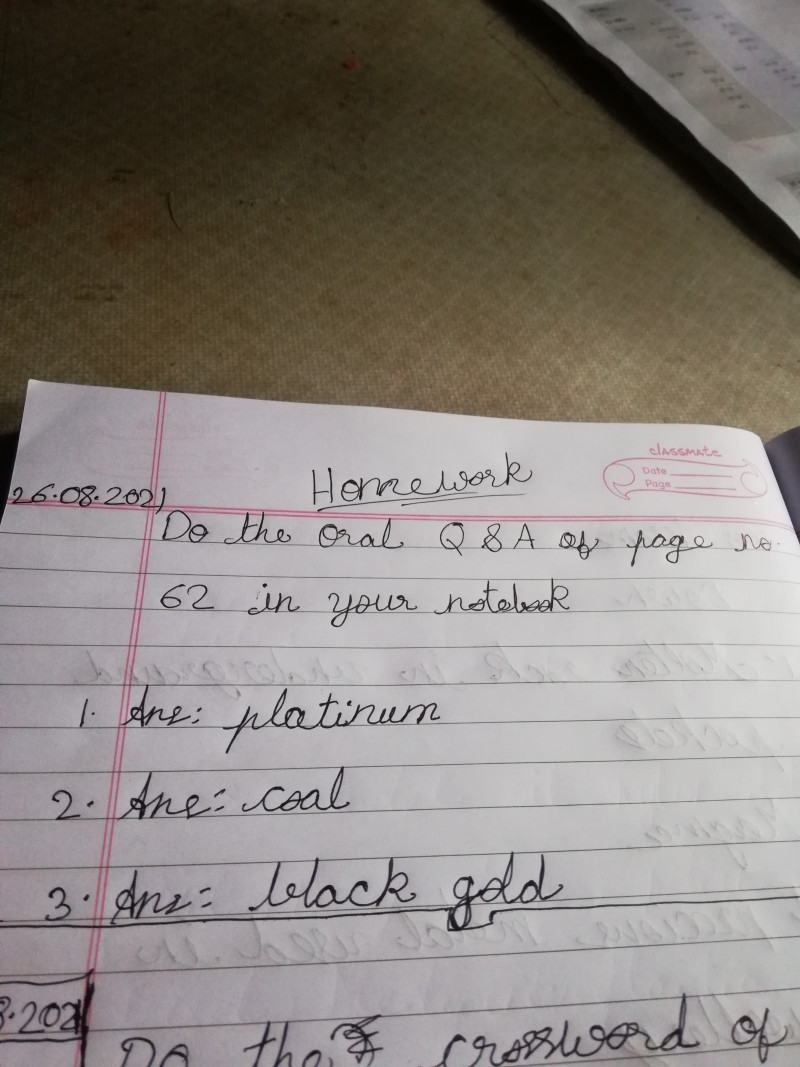 classmate
Date
Page
Homework
26.08.2021
Do the oral Q & A of page no.
62 in your notebook
1. Ans: platinum
2. Ans: coal
3. Ans: black gold
8.2021
Do the crossword of